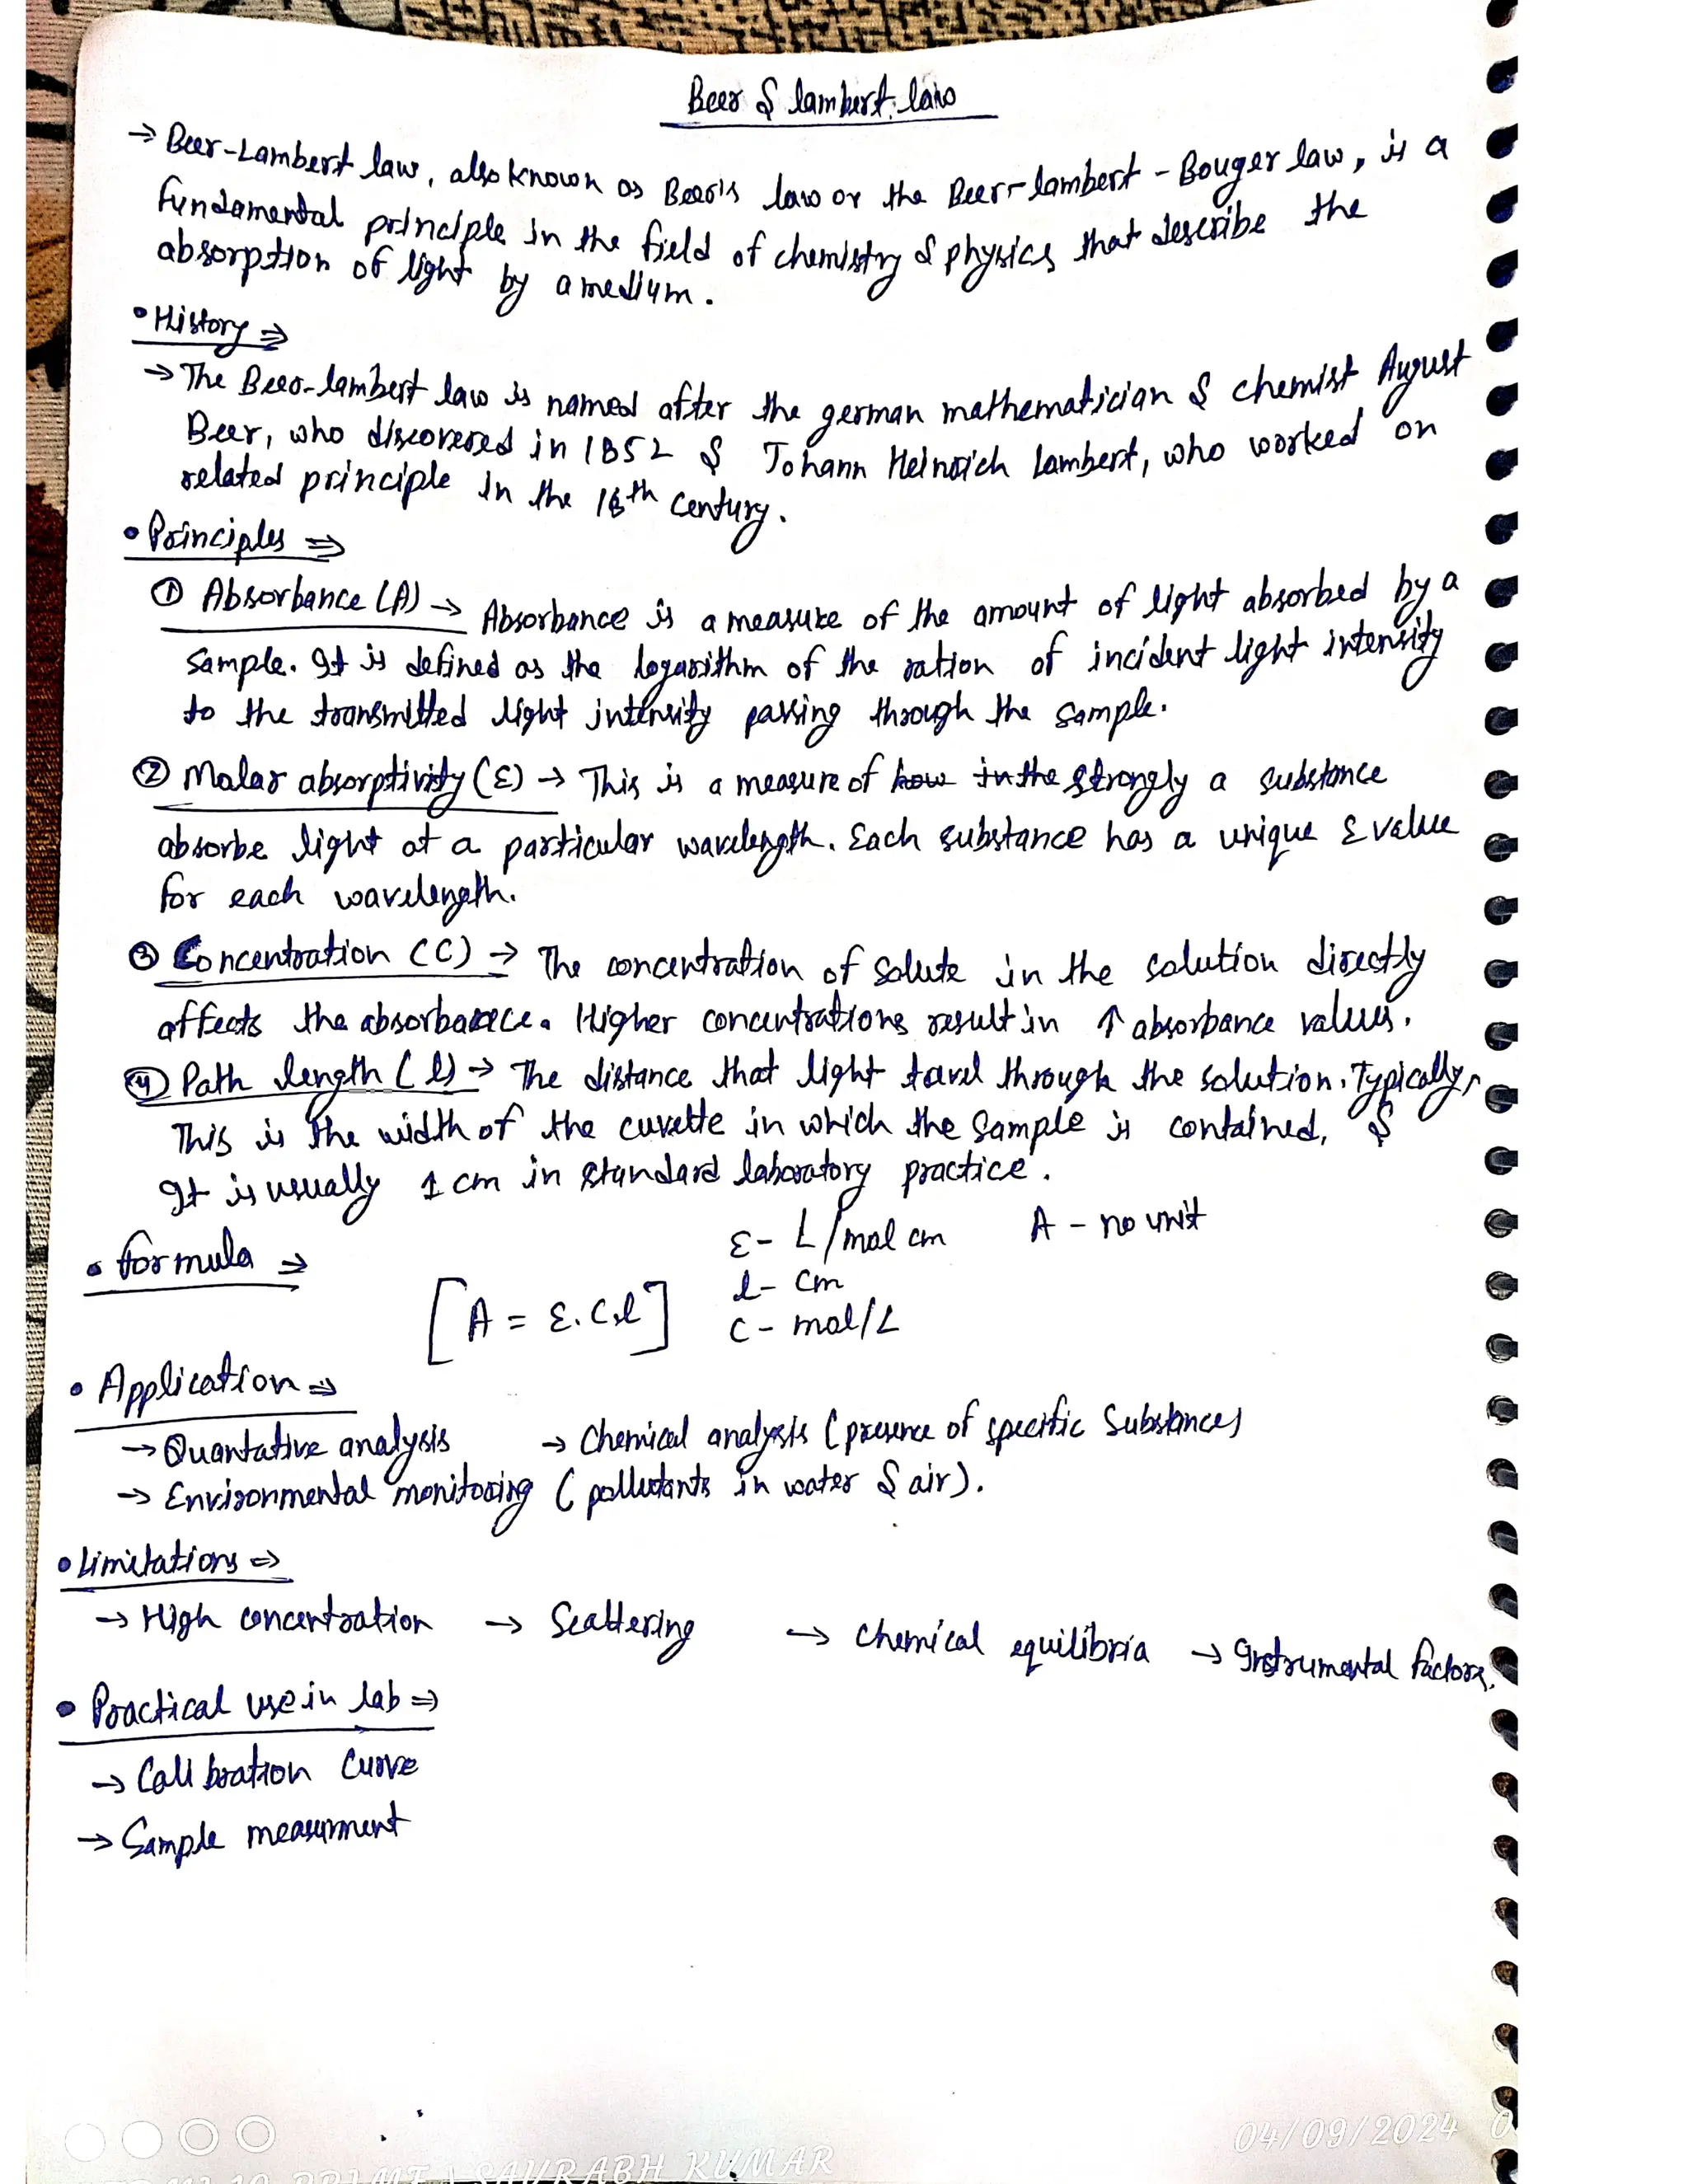 Beer & lambert law
→ Beer-Lambert law, also known as Beer's law or the Beer-lambert-Bouger law, is a
fundamental principle in the field of chemistry & physics that describe the
absorption of light by a medium.
• History ⇒
→ The Beer-lambert law is named after the german mathematician & chemist August
Beer, who discovered in 1852 & Johann Heinrich Lambert, who worked on
related principle in the 18th century.
• Principles ⇒
① Absorbance (A) → Absorbance is a measure of the amount of light absorbed by a
sample. It is defined as the logarithm of the ration of incident light intensity
to the transmitted light intensity passing through the sample.
② Molar absorptivity (ε) → This is a measure of how in the strongly a substance
absorbe light at a particular wavelength. Each substance has a unique ε value
for each wavelength.
③ Concentration (C) → The concentration of solute in the solution directly
affects the absorbance. Higher concentrations result in ↑ absorbance values.
④ Path length (l) → The distance that light tavel through the solution. Typically,
This is the width of the cuvette in which the sample is contained, &
It is usually 1 cm in standard laboratory practice.
• formula ⇒ ε - L/mol cm A - no unit
l - cm
[A = ε.C.l] C - mol/L
• Application ⇒
→ Quantative analysis → Chemical analysis (presence of specific Substances)
→ Environmental monitoring (pollutants in water & air).
• Limitations ⇒
→ High concentration → Scattering → Chemical equilibria → Instrumental factors.
• Practical use in lab ⇒
→ Calibration Curve
→ Sample measurment
04/09/2024
SAURABH KUMAR